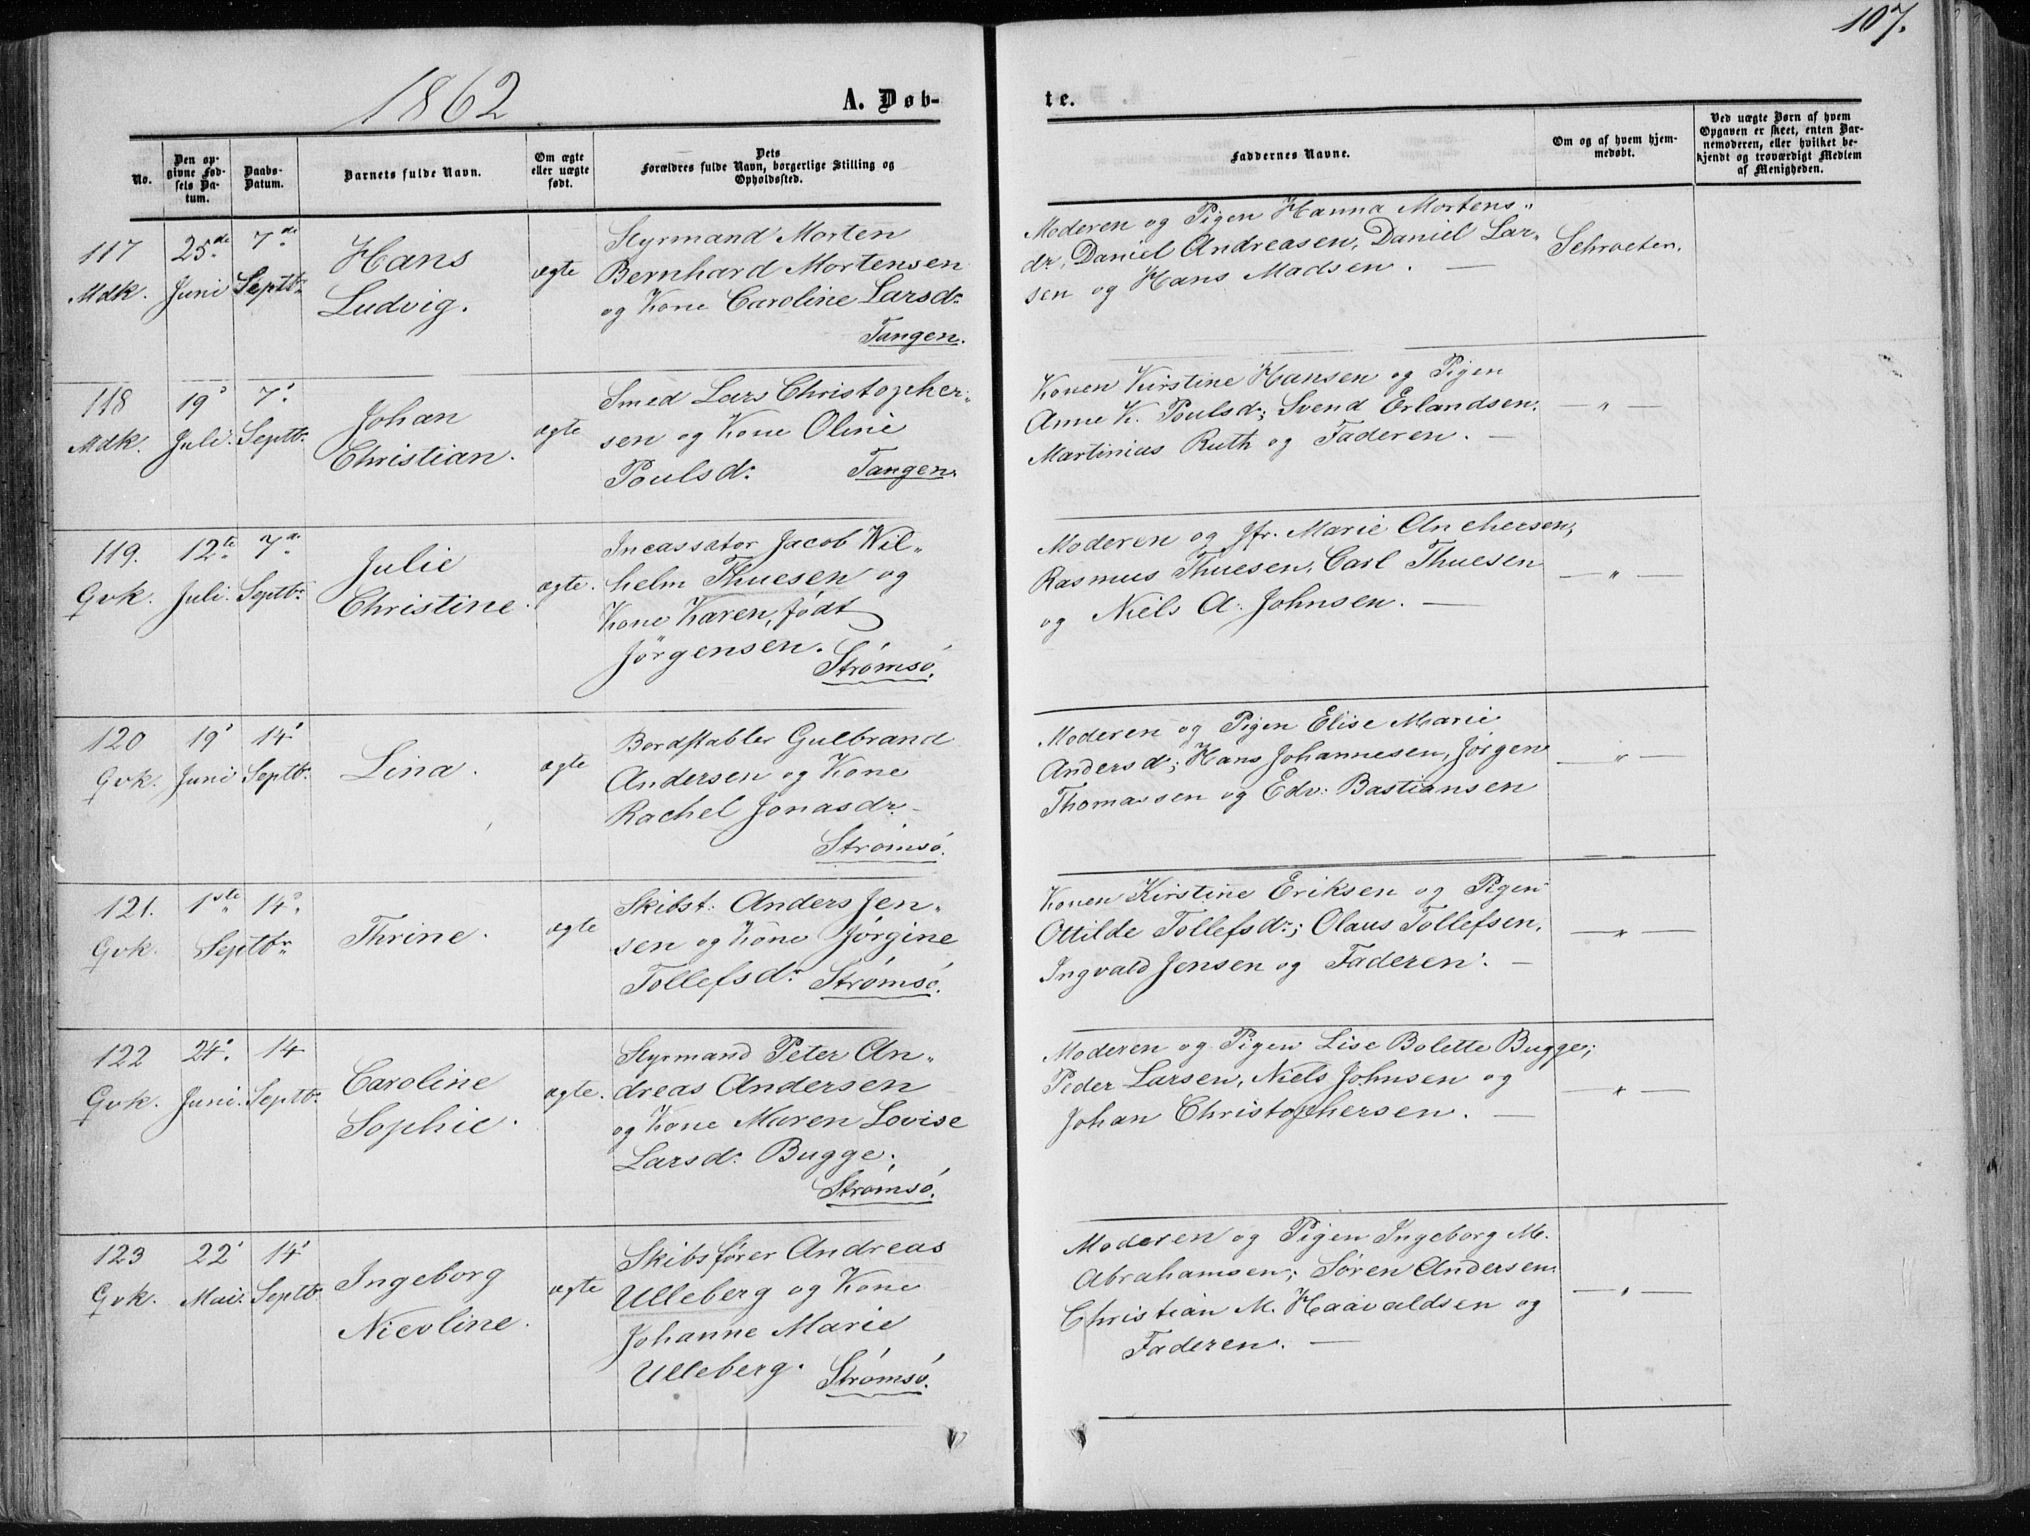 107.
1862
A. Døb-
te.
No.
Den op-
givne Fød-
sels Da-
tum.
Daabs-
Datum.
Barnets fulde Navn.
Om ægte
eller uægte
født.
Dets
Forældres fulde Navn, borgerlige Stilling og
Opholdssted.
Faddernes Navne.
Om og af hvem hjem-
medøbt.
Ved uægte Børn af hvem
Opgaven er skeet, enten Bar-
nemoderen, eller hvilket be-
kjendt og troværdigt Medlem
af Menigheden.
117
Mdk.
25de
Juni
7de
Septbr
Hans
Ludvig.
ægte
Styrmand Morten
Bernhard Mortensen
og Kone Caroline Larsdr
Tangen.
Moderen og Pigen Hanna Mortens„
dr, Daniel Andreasen, Daniel Lar„
sen og Hans Madsen. —
Schroeter.
118
Mdk.
19
Juli.
7
Septbr.
Johan
Christian.
ægte
Smed Lars Christopher„
sen og Kone Oline
Poulsd:
Tangen.
Konen Kirstine Hansen og Pigen
Anne K. Poulsd:; Svend Erlandsen,
Martinius Ruth og Faderen. —
— „ —
119.
Gvk.
12te
Juli.
7de
Septbr
Julie
Christine.
ægte.
Incassator Jacob Wil„
helm Thuesen og
Kone Karen, født
Jörgensen.
Strømsö.
Moderen og Jfr. Marie Anchersen,
Rasmus Thuesen, Carl Thuesen
og Niels A. Johnsen. —
— „ —
120
Gvk.
19
Juni
14
Septbr.
Lina.
ægte
Bordstabler Gulbrand
Andersen og Kone
Rachel Jonasdr. —
Strömsö.
Moderen og Pigen Elise Marie
Andersd:; Hans Johannesen, Jørgen
Thomassen og Edv: Bastiansen
— „ —
121.
Gvk.
1ste
Septbr
14
Thrine.
ægte
Skibst: Anders Jen„
sen og Kone Jørgine
Tollefsdr
Strømsö.
Konen Kirstine Eriksen og Pigen
Ottilde Tollefsdr; Olaus Tollefsen,
Ingvald Jensen og Faderen. —
— „ —
122
Gvk.
24.
Juni.
14
Septbr.
Caroline
Sophie.
ægte.
Styrmand Peter An„
dreas Andersen
og Kone Maren Lovise
Larsd: Bugge.
Strømsö.
Moderen og Pigen Lise Bolette Bugge;
Peder Larsen, Niels Johnsen og
Johan Christophersen. —
— „ —
123
Gvk.
22
Mai.
14
Septbr
Ingeborg
Nicoline.
ægte
Skibsfører Andreas
Ulleberg og Kone
Johanne Marie
Ulleberg.
Strømsö.
Moderen og Pigen Ingeborg M.
Abrahamsen; Sören Andersen
Christian M. Haavaldsen og
Faderen. —
— „ —